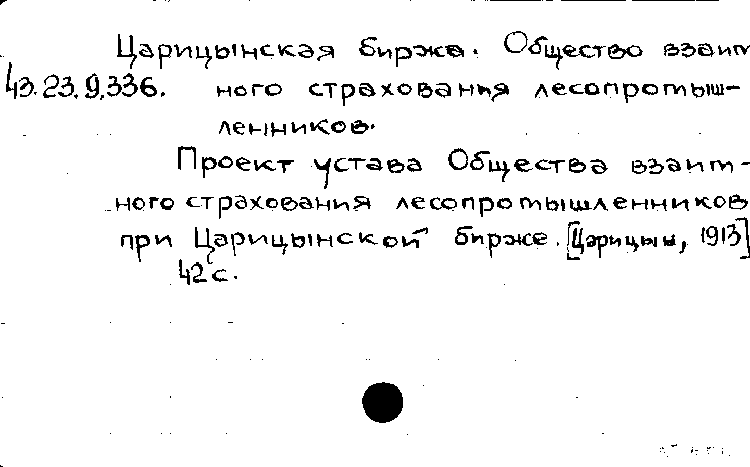 Царицынская биржа. Общество взаим
43.23.9.336. ного страхования лесопромыш-
ленников.
Проект устава Общества взаим-
ного страхования лесопромышленников
при Царицынской бирже. [Царицын, 1913]
42 с.